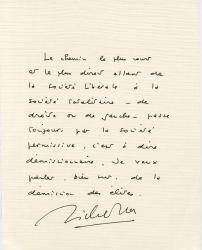 Le chemin le plus court
et le plus direct allant de
la société libérale à la
société totalitaire - de
droite ou de gauche - passe
toujours par la société
permissive, c'est à dire
démissionnaire. Je veux
parler, bien sûr, de la
démission des élites.